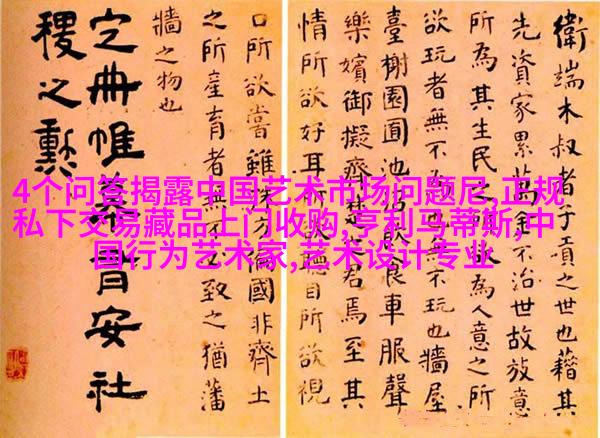 4个问答揭露中国艺术市场问题尼,正规
私下交易藏品上门收购,亨利马蒂斯,中
国行为艺术家,艺术设计专业
衛端木叔者子貢之世也藉其
先資家累萬金不治世故放意
所為其生民之所為人意之所
欲玩者無不為也無不玩也牆屋
臺榭園囿池沼飲食車服聲
樂嬪御擬齊楚之君焉至其
情所欲好耳所欲聽目所欲視
口所欲嘗雖殊方偏國非齊土
之所產育者無不必致之猶藩
牆之物也
定冊帷幕有安社
稷之勳